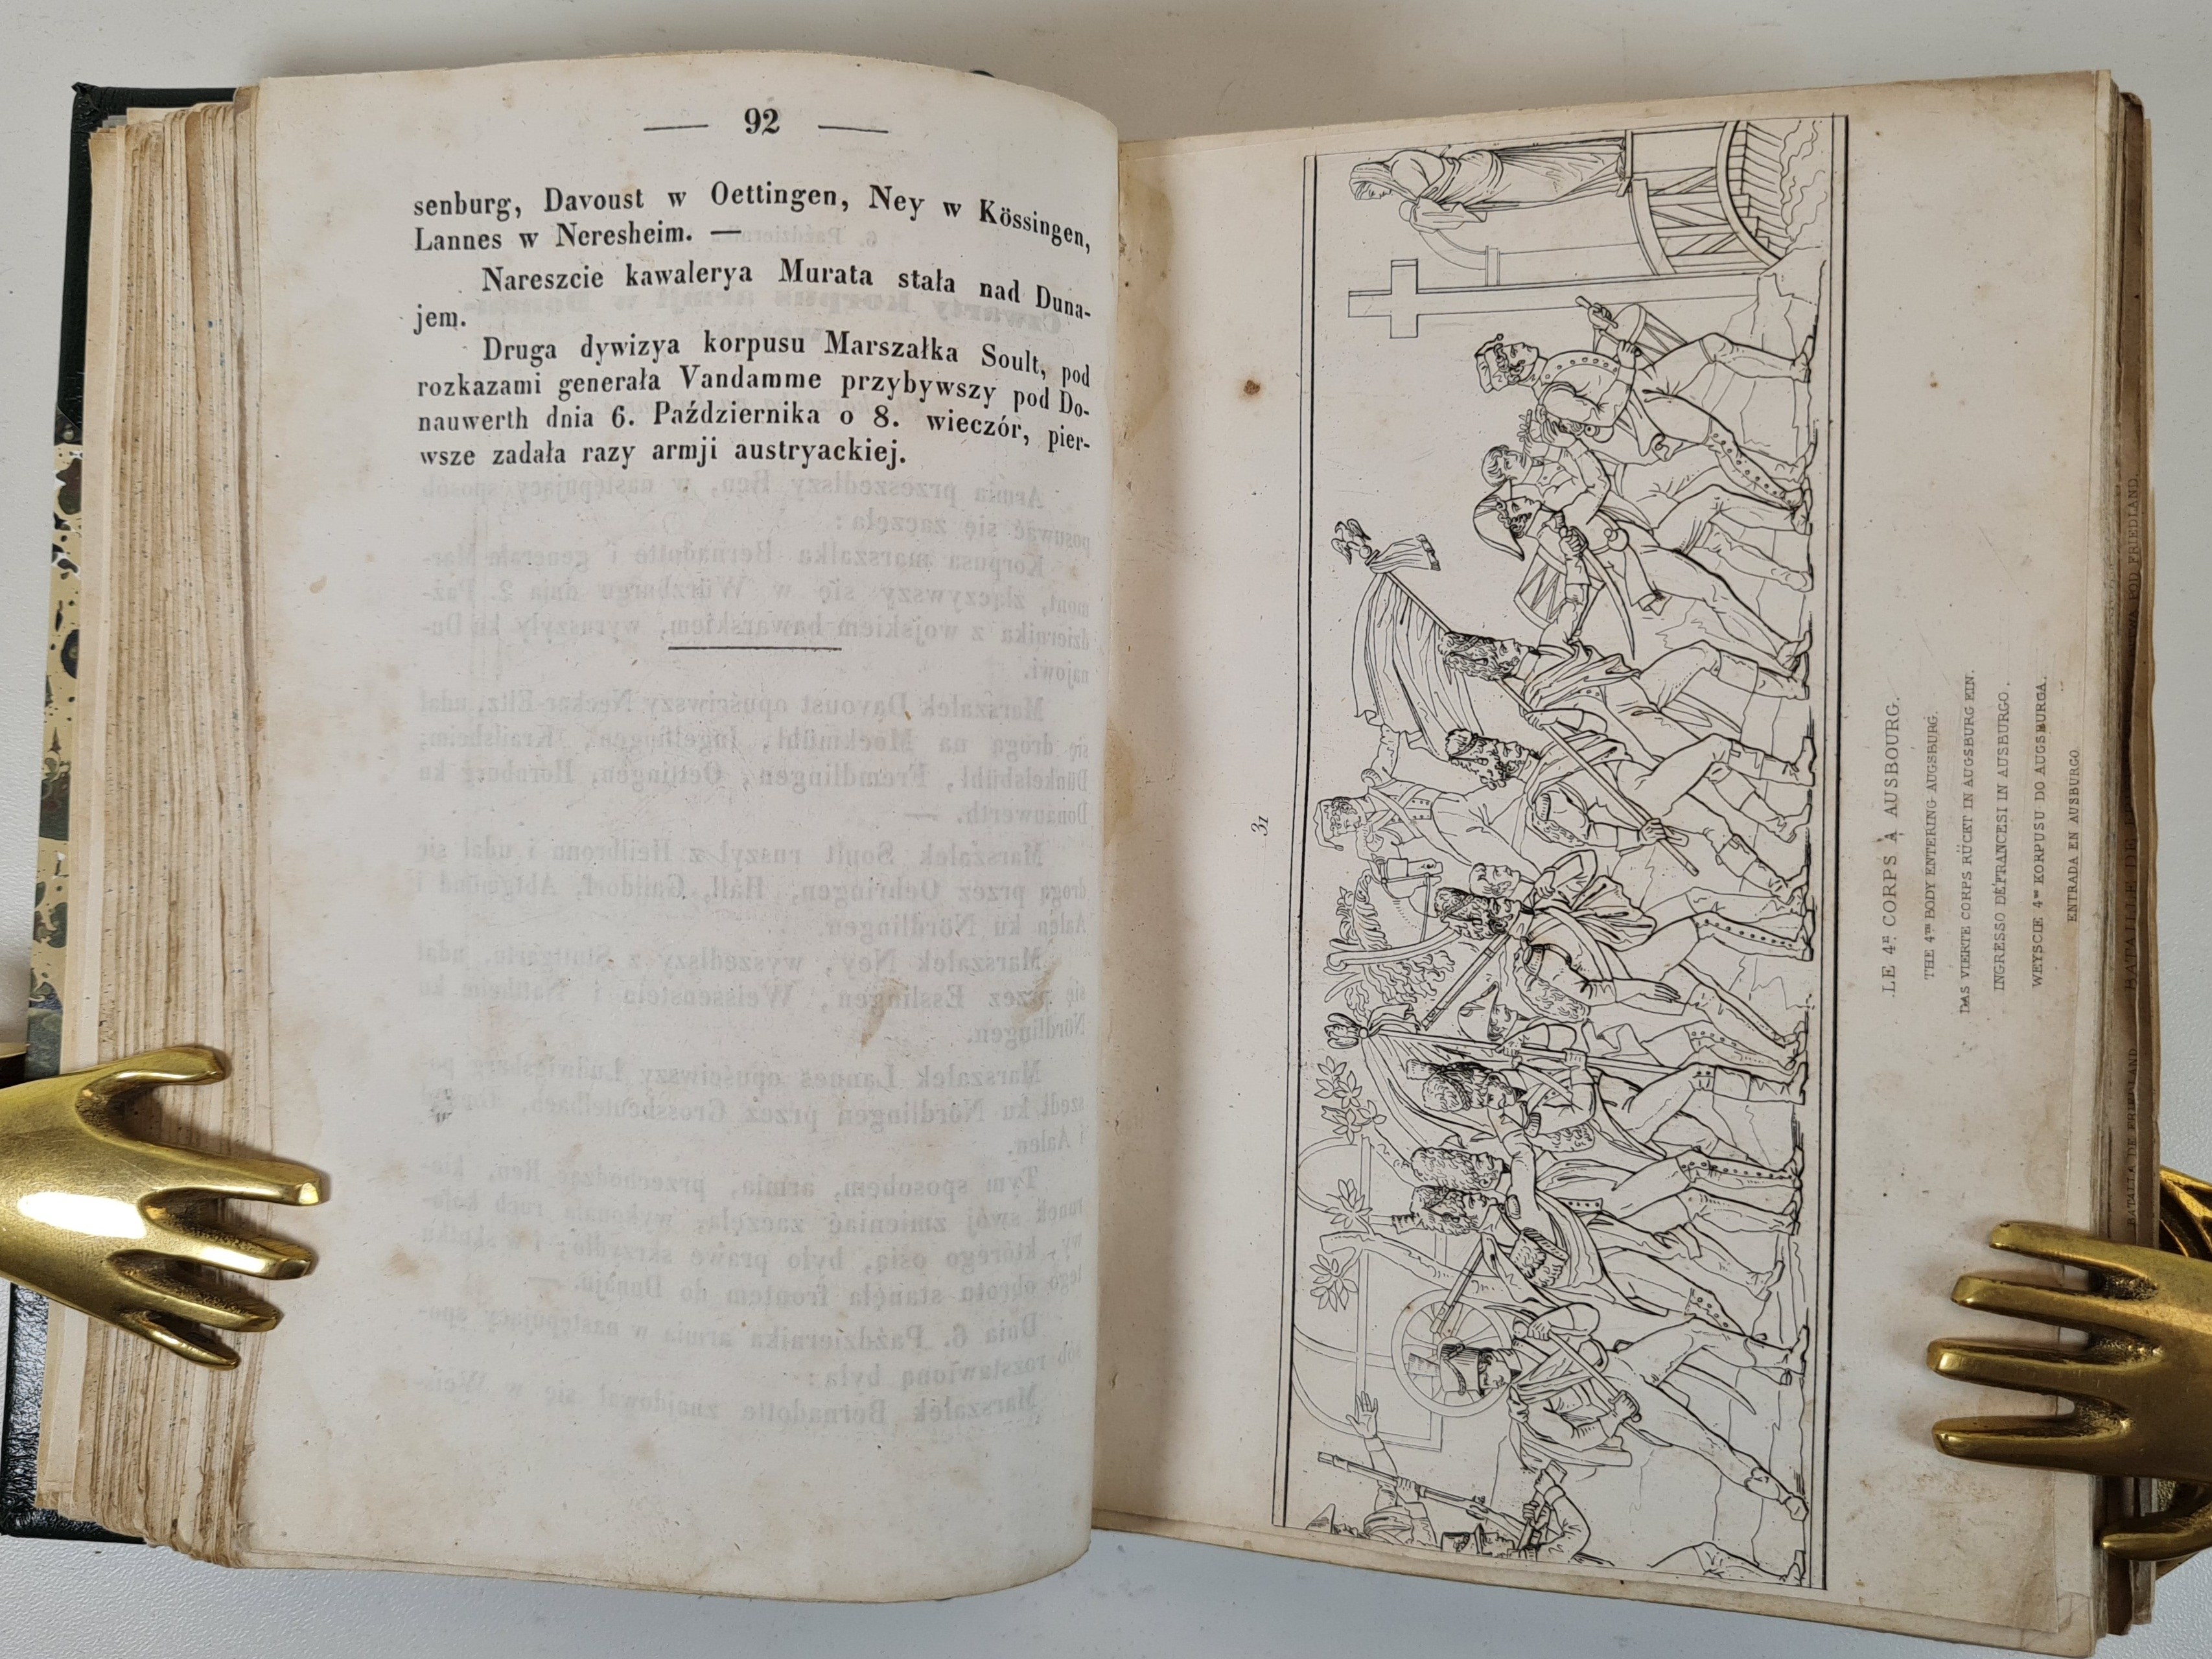 — 92 —
senburg, Davoust w Oettingen, Ney w Kössingen,
Lannes w Neresheim. —
Nareszcie kawalerya Murata stała nad Duna-
jem.
Druga dywizya korpusu Marszałka Soult, pod
rozkazami generała Vandamme przybywszy pod Do-
nauwerth dnia 6. Października o 8. wieczór, pier-
wsze zadała razy armji austryackiej.
31
LE 4E CORPS À AUSBOURG.
THE 4TH BODY ENTERING AUGSBURG.
DAS VIERTE CORPS RÜCKT IN AUGSBURG EIN.
INGRESSO DÉ FRANCESI IN AUSBURGO.
WEYSCIE 4GO KORPUSU DO AUGSBURGA.
ENTRADA EN AUSBURGO
BATAILLE DE
POD FRIEDLAND.
BATALLA DE FRIEDLAND